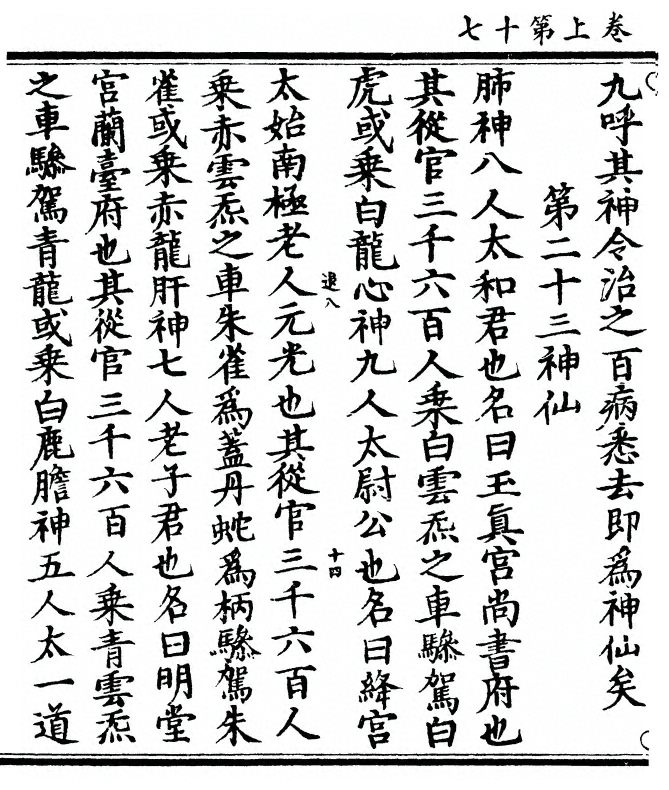 卷上第十七
九呼其神令治之百病悉去即為神仙矣
第二十三神仙
肺神八人太和君也名曰玉真宮尚書府也
其從官三千六百人乘白雲炁之車驂駕白
虎或乘白龍心神九人太尉公也名曰絳宮
退八
十四
太始南極老人元光也其從官三千六百人
乘赤雲炁之車朱雀為蓋丹蛇為柄驂駕朱
雀或乘赤龍肝神七人老子君也名曰明堂
宮蘭臺府也其從官三千六百人乘青雲炁
之車驂駕青龍或乘白鹿膽神五人太一道